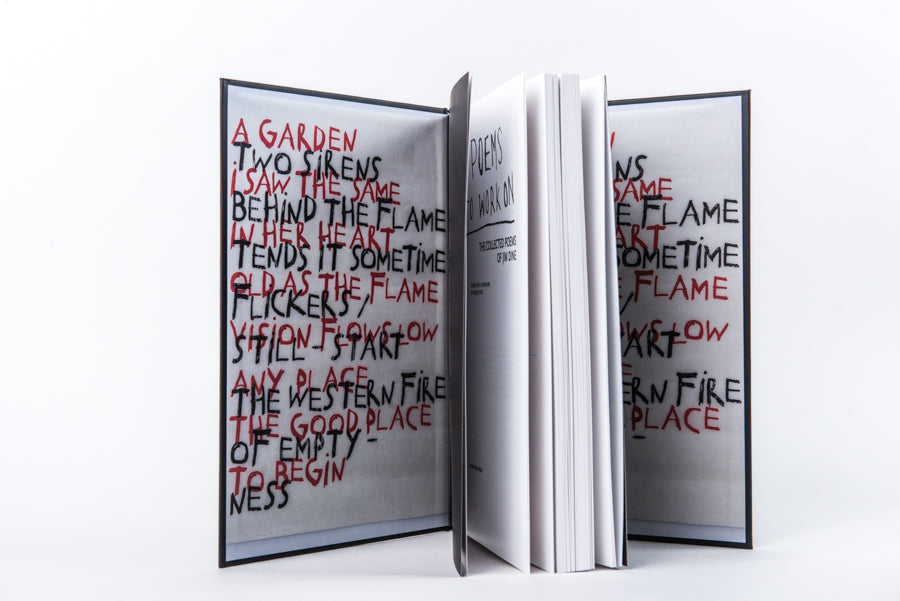 A GARDEN
TWO SIRENS
I SAW THE SAME
BEHIND THE FLAME
IN HER HEART
TENDS IT SOMETIME
OLD AS THE FLAME
FLICKERS /
VISION FLOWS LOW
STILL START
ANY PLACE
THE WESTERN FIRE
THE GOOD PLACE
OF EMPTY –
TO BEGIN
NESS
POEMS
TO WORK ON
THE COLLECTED POEMS
OF JIM DINE
NS
SAME
E FLAME
ART
OMETIME
FLAME
OWS LOW
ART
ERN FIRE
PLACE